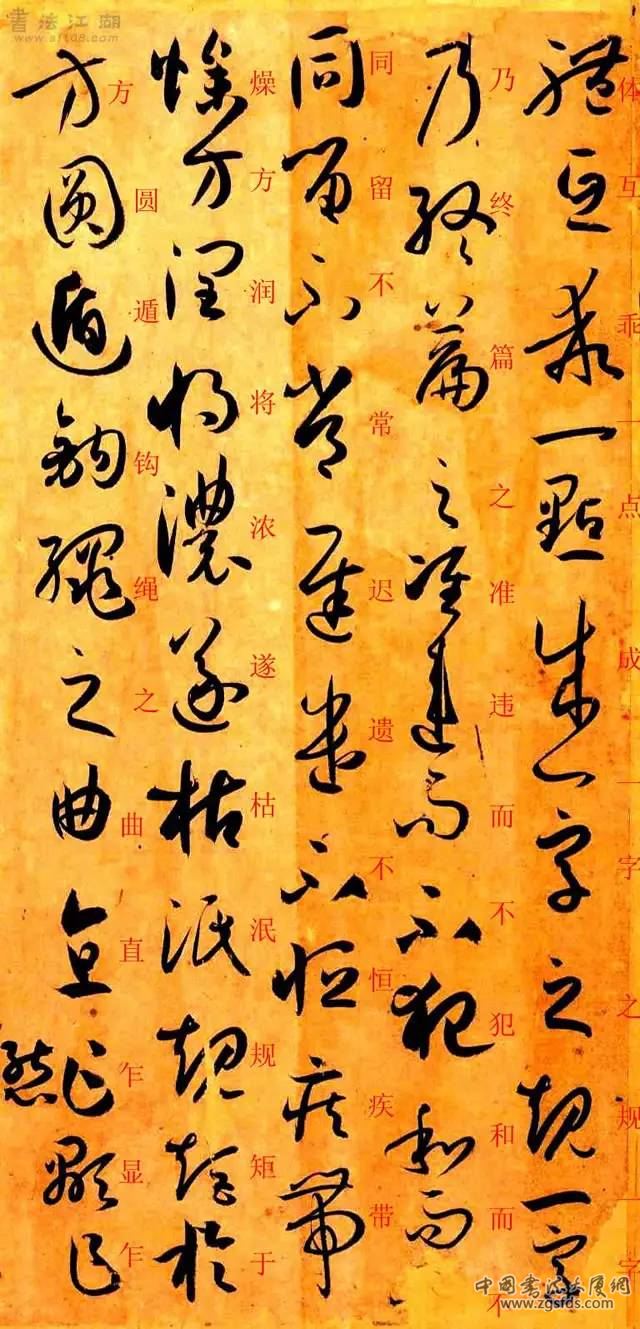 體互乖一點成一字之規一字
体互乖一点成一字之规一字
乃終篇之准違而不犯和而
乃终篇之准违而不犯和而不
同留不常遲遣不恒疾帶
同留不常迟遗不恒疾带
燥方潤將濃遂枯泯規矩於
燥方润将浓遂枯泯规矩于
方圓遁鉤繩之曲直乍顯乍
方圆遁钩绳之曲直乍显乍
書法江湖
www.sf108.com
中國書法大厦網
www.zgsfds.com